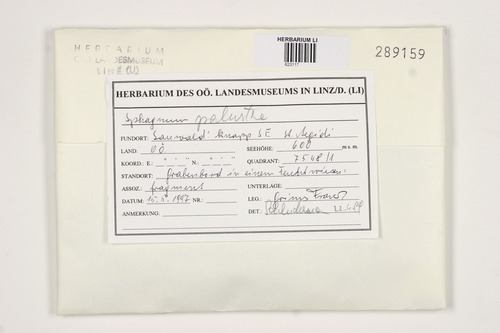 HERBARIUM LI
HERBARIUM
LANDESMUSEUM
LINZ (LI)
289159
HERBARIUM DES OÖ. LANDESMUSEUMS IN LINZ/D. (LI)
Sphagnum palustre
FUNDORT: Sauwald knapp SE St. Aegidi
LAND: OÖ SEEHÖHE: 600 m s. m.
KOORD.: E: ° ' " N: ° ' " QUADRANT: 7548/1
STANDORT: Grabenbord in einem
ASSOZ.: fragment UNTERLAGE:
DATUM: 1997 NR.: LEG.: Grims Franz
ANMERKUNG: DET.: